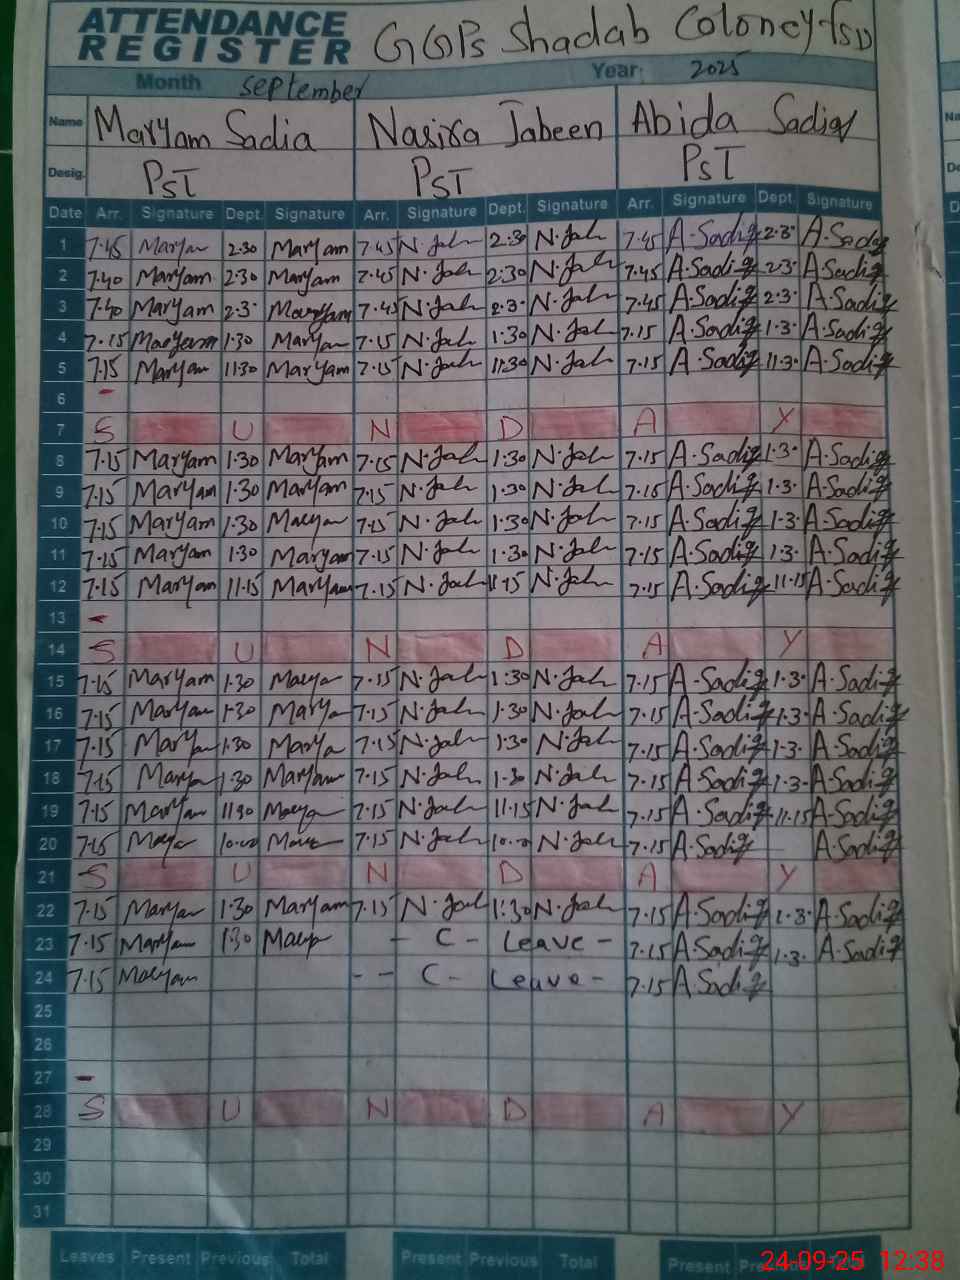 ATTENDANCE REGISTER GGPS Shadab Coloney FSD
Month September Year: 2025
Name Maryam Sadia Nasira Jabeen Abida Sadiq
Desig. PST PST PST
Date Arr. Signature Dept. Signature Arr. Signature Dept. Signature Arr. Signature Dept. Signature
1 7.45 Maryam 2.30 Maryam 7.45 N.Jab 2.30 N.Jab 7.45 A.Sadiq 2.3 A.Sadiq
2 7.40 Maryam 2.30 Maryam 7.45 N.Jab 2:30 N.Jab 7.45 A.Sadiq 2.3 A.Sadiq
3 7.40 Maryam 2.3 Maryam 7.45 N.Jab 2.3 N.Jab 7.45 A.Sadiq 2.3 A.Sadiq
4 7.15 Maryam 1.30 Maryam 7.15 N.Jab 1.30 N.Jab 7.15 A.Sadiq 1.3 A.Sadiq
5 7.15 Maryam 11.30 Maryam 7.15 N.Jab 11.30 N.Jab 7.15 A.Sadiq 11.3 A.Sadiq
6 -
7 S U N D A Y
8 7.15 Maryam 1.30 Maryam 7.15 N.Jab 1.30 N.Jab 7.15 A.Sadiq 1.3 A.Sadiq
9 7.15 Maryam 1.30 Maryam 7.15 N.Jab 1.30 N.Jab 7.15 A.Sadiq 1.3 A.Sadiq
10 7.15 Maryam 1.30 Maryam 7.15 N.Jab 1.30 N.Jab 7.15 A.Sadiq 1.3 A.Sadiq
11 7.15 Maryam 1.30 Maryam 7.15 N.Jab 1.30 N.Jab 7.15 A.Sadiq 1.3 A.Sadiq
12 7.15 Maryam 11.15 Maryam 7.15 N.Jab 11.15 N.Jab 7.15 A.Sadiq 11.15 A.Sadiq
13 -
14 S U N D A Y
15 7.15 Maryam 1.30 Marya 7.15 N.Jab 1.30 N.Jab 7.15 A.Sadiq 1.3 A.Sadiq
16 7.15 Maryam 1.30 Marya 7.15 N.Jab 1.30 N.Jab 7.15 A.Sadiq 1.3 A.Sadiq
17 7.15 Marya 1.30 Marya 7.15 N.Jab 1.30 N.Jab 7.15 A.Sadiq 1.3 A.Sadiq
18 7.15 Marya 1.30 Maryam 7.15 N.Jab 1.30 N.Jab 7.15 A.Sadiq 1.3 A.Sadiq
19 7.15 Maryam 11.30 Marya 7.15 N.Jab 11.15 N.Jab 7.15 A.Sadiq 11.15 A.Sadiq
20 7.15 Marya 10.00 7.15 N.Jab 10.00 N.Jab 7.15 A.Sadiq A.Sadiq
21 S U N D A Y
22 7.15 Maryam 1.30 Maryam 7.15 N.Jab 1:30 N.Jab 7.15 A.Sadiq 1.3 A.Sadiq
23 7.15 Maryam 1.30 Marya - C - Leave - 7.15 A.Sadiq 1.3 A.Sadiq
24 7.15 Maryam - - C - Leave - 7.15 A.Sadiq
25
26
27 -
28 S U N D A Y
29
30
31
Leaves Present Previous Total Present Previous Total Present Total
24-09-25 12:38